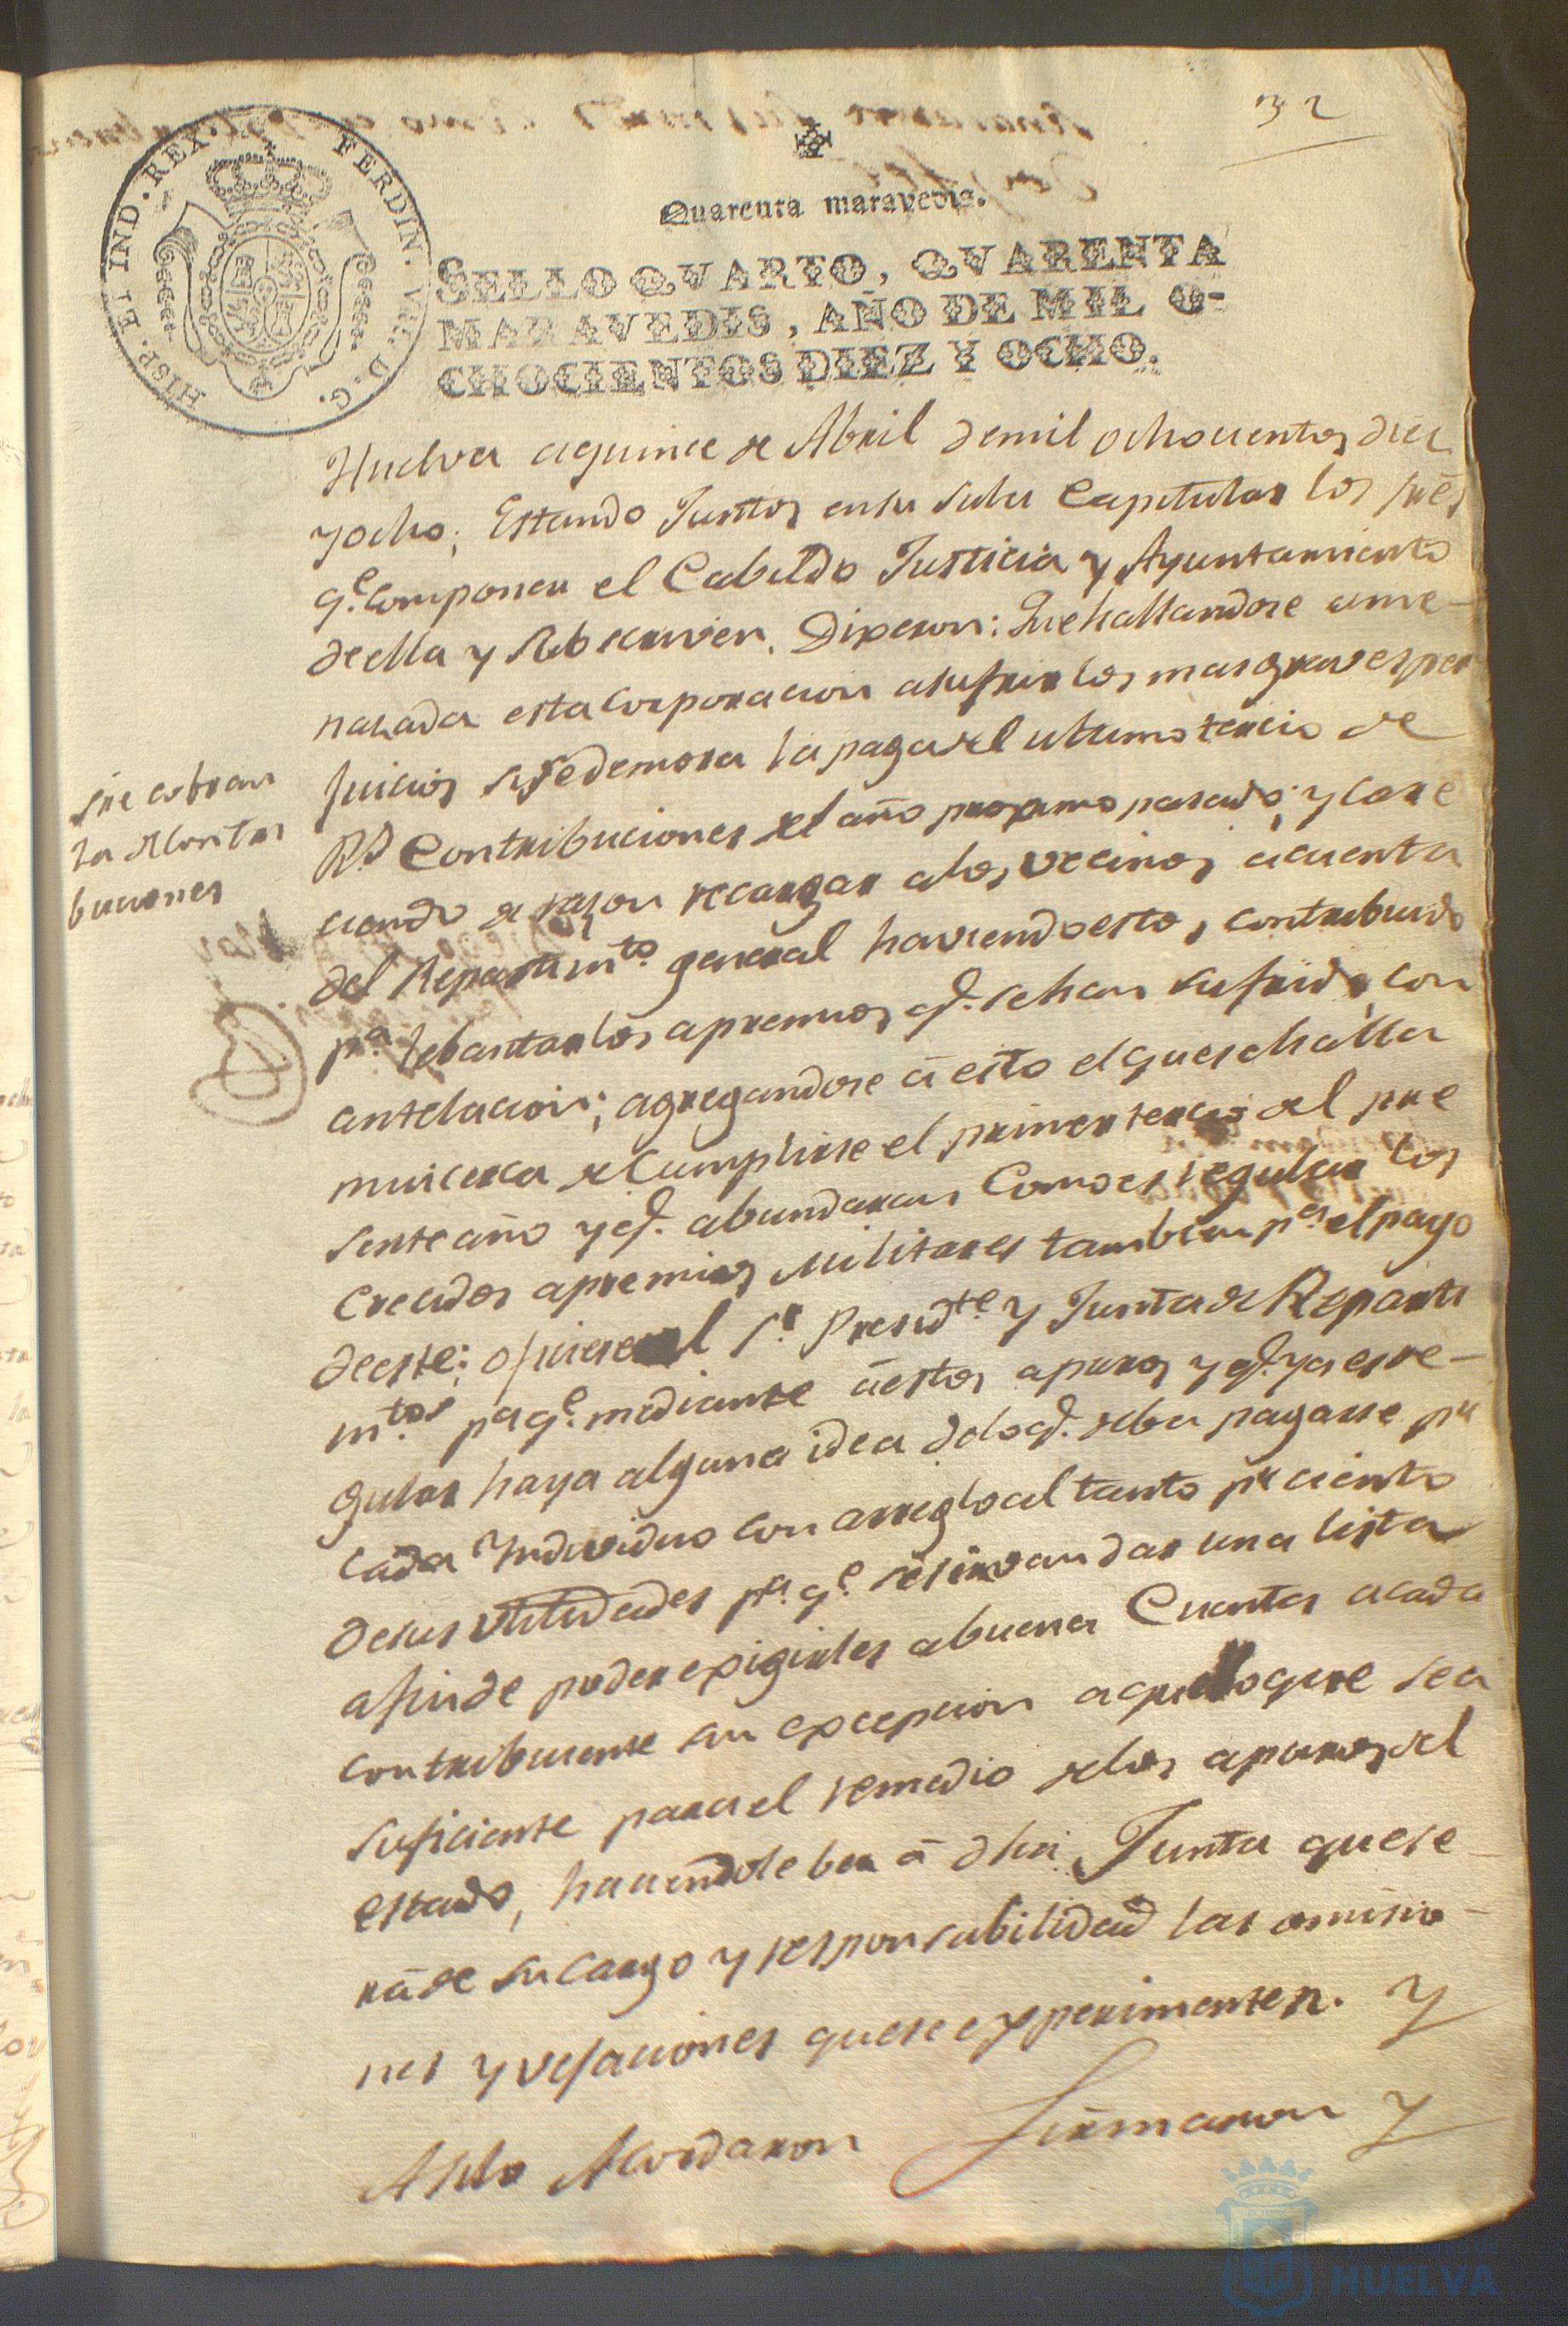 32
Quarenta maravedis.
HISP. ET IND. REX. FERDIN. VII. D. G.
SELLO QVARTO, QVARENTA
MARAVEDIS, AÑO DE MIL O-
CHOCIENTOS DIEZ Y OCHO.
Huelva a quince de Abril de mil ochocientos diez
y ocho; Estando Juntos en su Sala Capitular los sres
q.e componen el Cabildo Justicia y Ayuntamiento
de ella y Subscriven. Dixeron: Que hallandose ame-
nazada esta corporacion a sufrir los mas graves per
juicios si se demora la paga del ultimo tercio de
R.s Contribuciones del año proximo pasado; y care
ciendo de razon recargar a los vecinos a cuenta
del Repartim.to general haviendo estos contribuido
p.a lebantar los apremios q.e se han sufrido con
antelacion; agregandose á esto el que se halla
mui cerca de Cumplirse el primer tercio del pre
sente año y q.e abundaran Como es regular los
crecidos apremios Militares tambien p.a el pago
de este; oficiese al S.r Presid.te y Junta de Reparti
m.tos p.a q.e mediante á estos apuros y q.e ya es re-
gular haya alguna idea de lo q.e deba pagarse p.r
cada Yndividuo con arreglo al tanto p.r ciento
de sus utilidades p.a q.e se sirvan dar una lista
a fin de poder exigirles a buena Cuenta a cada
contribuiente sin excepcion aquello que sea
suficiente para el remedio de los apuros del
estado, haciendole ber á dha Junta que se-
rá de su cargo y responsabilidad las omisio-
nes y vejaciones que se experimenten. Y
Asi lo Acordaron Firmaron y
Sre cobran
za de Contri
buciones
HUELVA